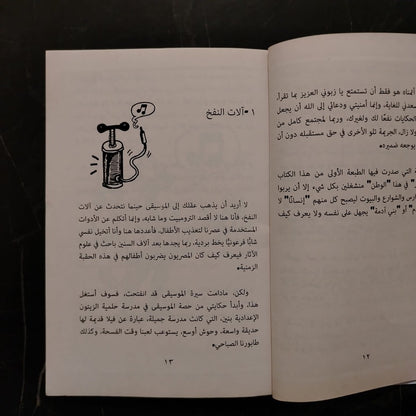 أتمناه هو فقط أن تستمتع يا زبوني العزيز بما تقرأ،
سعدني للغاية، وإنما أمنيتي ودعائي إلى الله أن يجعل
الحكايات نفعًا لك ولغيرك، وربما لمجتمع كامل من
ولا زال، الجريمة تلو الأخرى في حق مستقبله دون أن
يوجعه ضميره.
التي صدرت فيها الطبعة الأولى من هذا الكتاب
في هذا "الوطن" منشغلين بكل شيء إلا أن يربوا
ارس والشوارع والبيوت ليصبح كل منهم "إنسانًا" لا
أو "بني آدمة" يجهل على نفسه ولا يعرف كيف
١٢
١ • آلات النفخ
لا أريد أن يذهب عقلك إلى الموسيقى حينما نتحدث عن آلات
النفخ، فأنا هنا لا أقصد الترومبيت وما شابه، وإنما أتكلم عن الأدوات
المستخدمة في عصرنا لتعذيب الأطفال، فأعددها هنا وأنا أتخيل نفسي
شابًا فرعونيًا يخط بردية، ربما يجدها بعد آلاف السنين باحث في علوم
الآثار فيعرف كيف كان المصريون يضربون أطفالهم في هذه الحقبة
الزمنية.
ولكن، مادامت سيرة الموسيقى قد انفتحت، فسوف أستغل
هذا، وأبدأ حكايتي من حصة الموسيقى في مدرسة حلمية الزيتون
الإعدادية بنين، التي كانت مدرسة جميلة، عبارة عن فيلا قديمة لها
حديقة واسعة، وحوش أوسع، يستوعب لعبنا وقت الفسحة، وكذلك
طابورنا الصباحي.
١٣